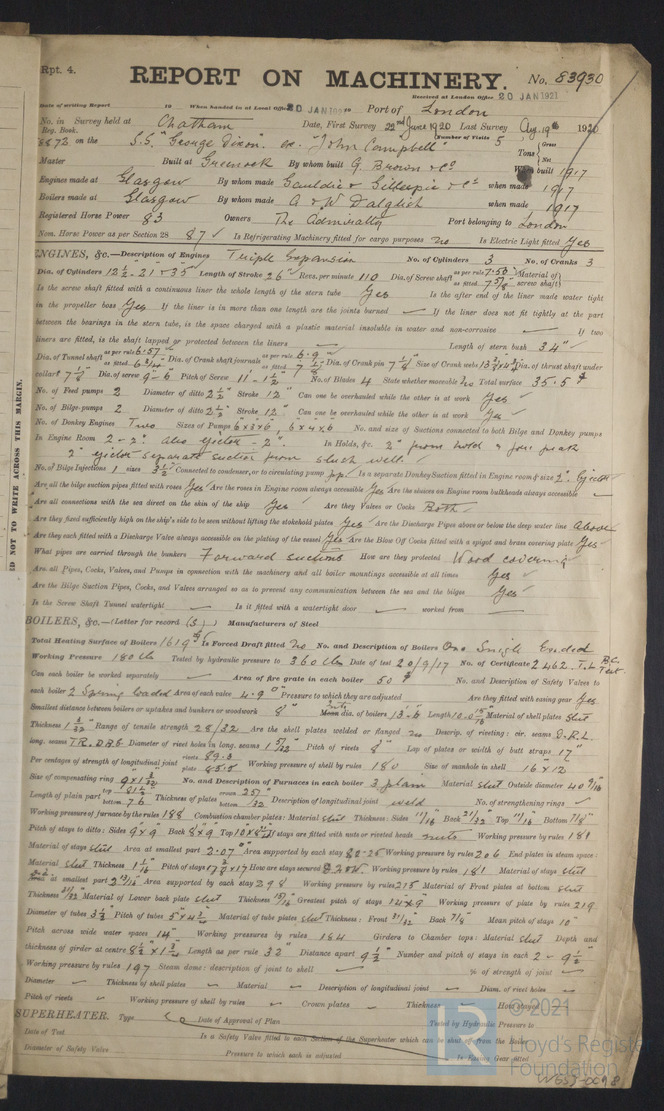 Rpt. 4.
REPORT ON MACHINERY. No. 83930
Received at London Office 20 JAN 1921
Date of writing Report 19 When handed in at Local Office 20 JAN 19 Port of London
No. in Survey held at Chatham Date, First Survey 22nd June 1920 Last Survey Aug. 19th 1920
Reg. Book. (Number of Visits 5
8872 on the S.S. "George Dixon" ex "John Campbell" Tons Gross Net
Master Built at Greenock By whom built G. Brown & Co When built 1917
Engines made at Glasgow By whom made Gauldie & Gillespie & Co when made 1917
Boilers made at Glasgow By whom made A & W Dalglish when made 1917
Registered Horse Power 83 Owners The Admiralty Port belonging to London
Nom. Horse Power as per Section 28 87 Is Refrigerating Machinery fitted for cargo purposes No Is Electric Light fitted Yes
ENGINES, &c.—Description of Engines Triple Expansion No. of Cylinders 3 No. of Cranks 3
Dia. of Cylinders 13½ - 21 - 35" Length of Stroke 26" Revs. per minute 110 Dia. of Screw shaft as per rule 7.53 as fitted 7 5/8 Material of screw shaft
Is the screw shaft fitted with a continuous liner the whole length of the stern tube Yes Is the after end of the liner made water tight
in the propeller boss Yes If the liner is in more than one length are the joints burned If the liner does not fit tightly at the part
between the bearings in the stern tube, is the space charged with a plastic material insoluble in water and non-corrosive If two
liners are fitted, is the shaft lapped or protected between the liners Length of stern bush 34"
Dia. of Tunnel shaft as per rule 6.57 as fitted 6¾ Dia. of Crank shaft journals as per rule 6.9 as fitted 7 1/8 Dia. of Crank pin 7 1/8 Size of Crank webs Dia. of thrust shaft under
collars 7 1/8 Dia. of screw 9-6 Pitch of Screw 11'-1½" No. of Blades 4 State whether moveable No Total surface 35.5
No. of Feed pumps 2 Diameter of ditto 2½ Stroke 12" Can one be overhauled while the other is at work Yes
No. of Bilge pumps 2 Diameter of ditto 2½ Stroke 12" Can one be overhauled while the other is at work Yes
No. of Donkey Engines Two Sizes of Pumps 6x3x6, 6x4x6 No. and size of Suctions connected to both Bilge and Donkey pumps
In Engine Room 2 - 2" also ejector - 2" In Holds, &c. 2" from hold & fore peak
2" ejector separate suction from slush well.
No. of Bilge Injections 1 sizes 3½ Connected to condenser, or to circulating pump pump Is a separate Donkey Suction fitted in Engine room & size 2" Ejector
Are all the bilge suction pipes fitted with roses Yes Are the roses in Engine room always accessible Yes Are the sluices on Engine room bulkheads always accessible
Are all connections with the sea direct on the skin of the ship Yes Are they Valves or Cocks Both
Are they fixed sufficiently high on the ship's side to be seen without lifting the stokehold plates Yes Are the Discharge Pipes above or below the deep water line Above
Are they each fitted with a Discharge Valve always accessible on the plating of the vessel Yes Are the Blow Off Cocks fitted with a spigot and brass covering plate Yes
What pipes are carried through the bunkers Forward suctions How are they protected Wood covering
Are all Pipes, Cocks, Valves, and Pumps in connection with the machinery and all boiler mountings accessible at all times Yes
Are the Bilge Suction Pipes, Cocks, and Valves arranged so as to prevent any communication between the sea and the bilges Yes
Is the Screw Shaft Tunnel watertight Is it fitted with a watertight door worked from
BOILERS, &c.—(Letter for record (S) Manufacturers of Steel
Total Heating Surface of Boilers 1619 Is Forced Draft fitted No No. and Description of Boilers One Single Ended
Working Pressure 180 lbs Tested by hydraulic pressure to 360 lbs Date of test 20/9/17 No. of Certificate 2462
Can each boiler be worked separately Area of fire grate in each boiler 50 No. and Description of Safety Valves to
each boiler 2 Spring loaded Area of each valve 4.9 Pressure to which they are adjusted Are they fitted with easing gear Yes
Smallest distance between boilers or uptakes and bunkers or woodwork 8" dia. of boilers 13'-6 Length Material of shell plates Steel
Thickness 1 3/32 Range of tensile strength 28/32 Are the shell plates welded or flanged No Descrip. of riveting: cir. seams D.R.L.
long. seams T.R.D.B.S Diameter of rivet holes in long. seams 1 5/32 Pitch of rivets 8" Lap of plates or width of butt straps 17"
Per centages of strength of longitudinal joint rivets 89.3 plate 85.5 Working pressure of shell by rules 180 Size of manhole in shell 16 x 12
Size of compensating ring No. and Description of Furnaces in each boiler 3 plain Material steel Outside diameter
Length of plain part top bottom 76 Thickness of plates crown bottom Description of longitudinal joint weld No. of strengthening rings
Working pressure of furnace by the rules 188 Combustion chamber plates: Material steel Thickness: Sides 11/16 Back 21/32 Top 11/16 Bottom 7/8
Pitch of stays to ditto: Sides 9x9 Back 8x9 Top If stays are fitted with nuts or riveted heads nuts Working pressure by rules 181
Material of stays steel Area at smallest part 2.07 Area supported by each stay Working pressure by rules 206 End plates in steam space:
Material steel Thickness 1 1/16 Pitch of stays How are stays secured Working pressure by rules 181 Material of stays steel
at smallest part Area supported by each stay 298 Working pressure by rules 215 Material of Front plates at bottom steel
Thickness 31/32 Material of Lower back plate steel Thickness 15/16 Greatest pitch of stays 14x9 Working pressure of plate by rules 219
Diameter of tubes 3½ Pitch of tubes Material of tube plates steel Thickness: Front 31/32 Back 7/8 Mean pitch of stays 10"
Pitch across wide water spaces 14" Working pressures by rules 184 Girders to Chamber tops: Material steel Depth and
thickness of girder at centre Length as per rule 32" Distance apart 9½ Number and pitch of stays in each 2 - 9½
Working pressure by rules 197 Steam dome: description of joint to shell % of strength of joint
Diameter Thickness of shell plates Material Description of longitudinal joint Diam. of rivet holes
Pitch of rivets Working pressure of shell by rules Crown plates Thickness How stayed
SUPERHEATER. Type Date of Approval of Plan Tested by Hydraulic Pressure to
Date of Test Is a Safety Valve fitted to each Section of the Superheater which can be shut off from the Boiler
Diameter of Safety Valve Pressure to which each is adjusted Is Easing Gear fitted
DO NOT TO WRITE ACROSS THIS MARGIN.
© 2021
Lloyd's Register
Foundation
W553-0098